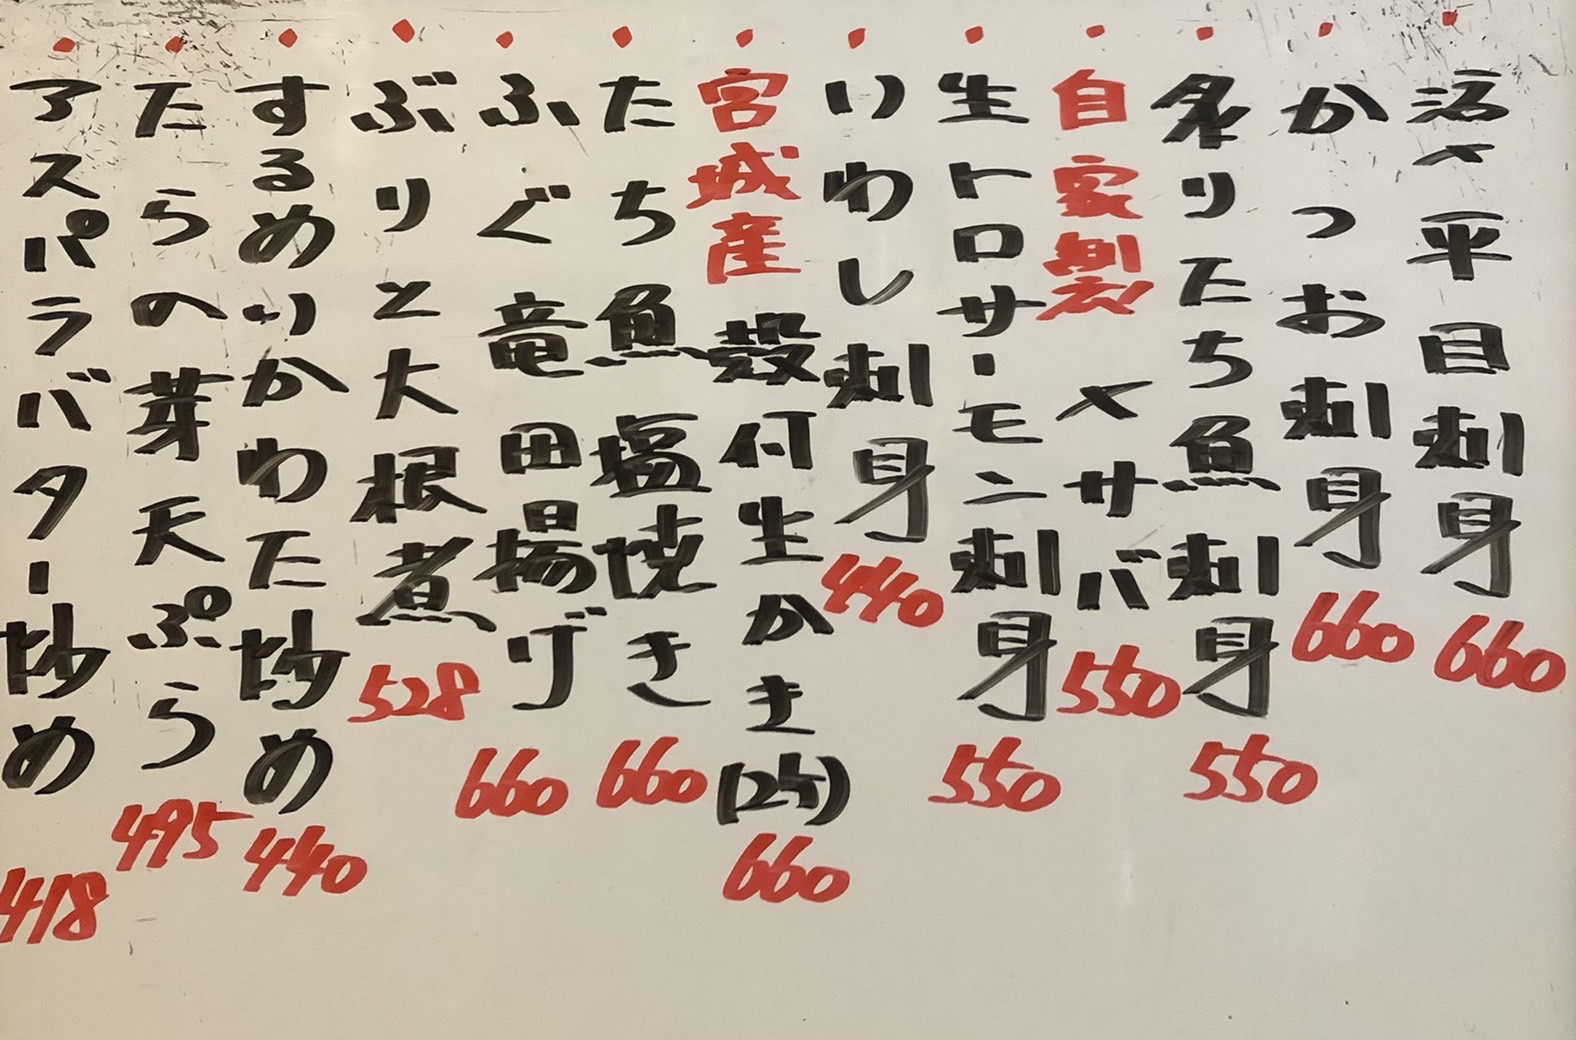 活〆平目刺身 660
かつお刺身 660
炙りたち魚刺身 550
自家製〆サバ 550
生トロサーモン刺身 550
いわし刺身 440
宮城産殻付生かき(2ケ) 660
たち魚塩焼き 660
ふぐ竜田揚げ 660
ぶりと大根煮 528
するめいかわた炒め 440
たらの芽天ぷら 495
アスパラバター炒め 418